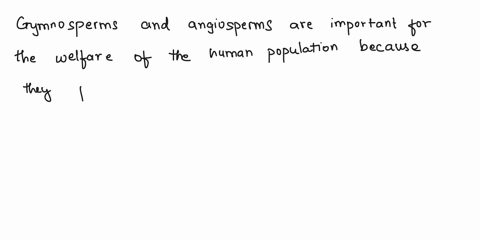 Gymnosperms and angiosperms are important for
the welfare of the human population because
they